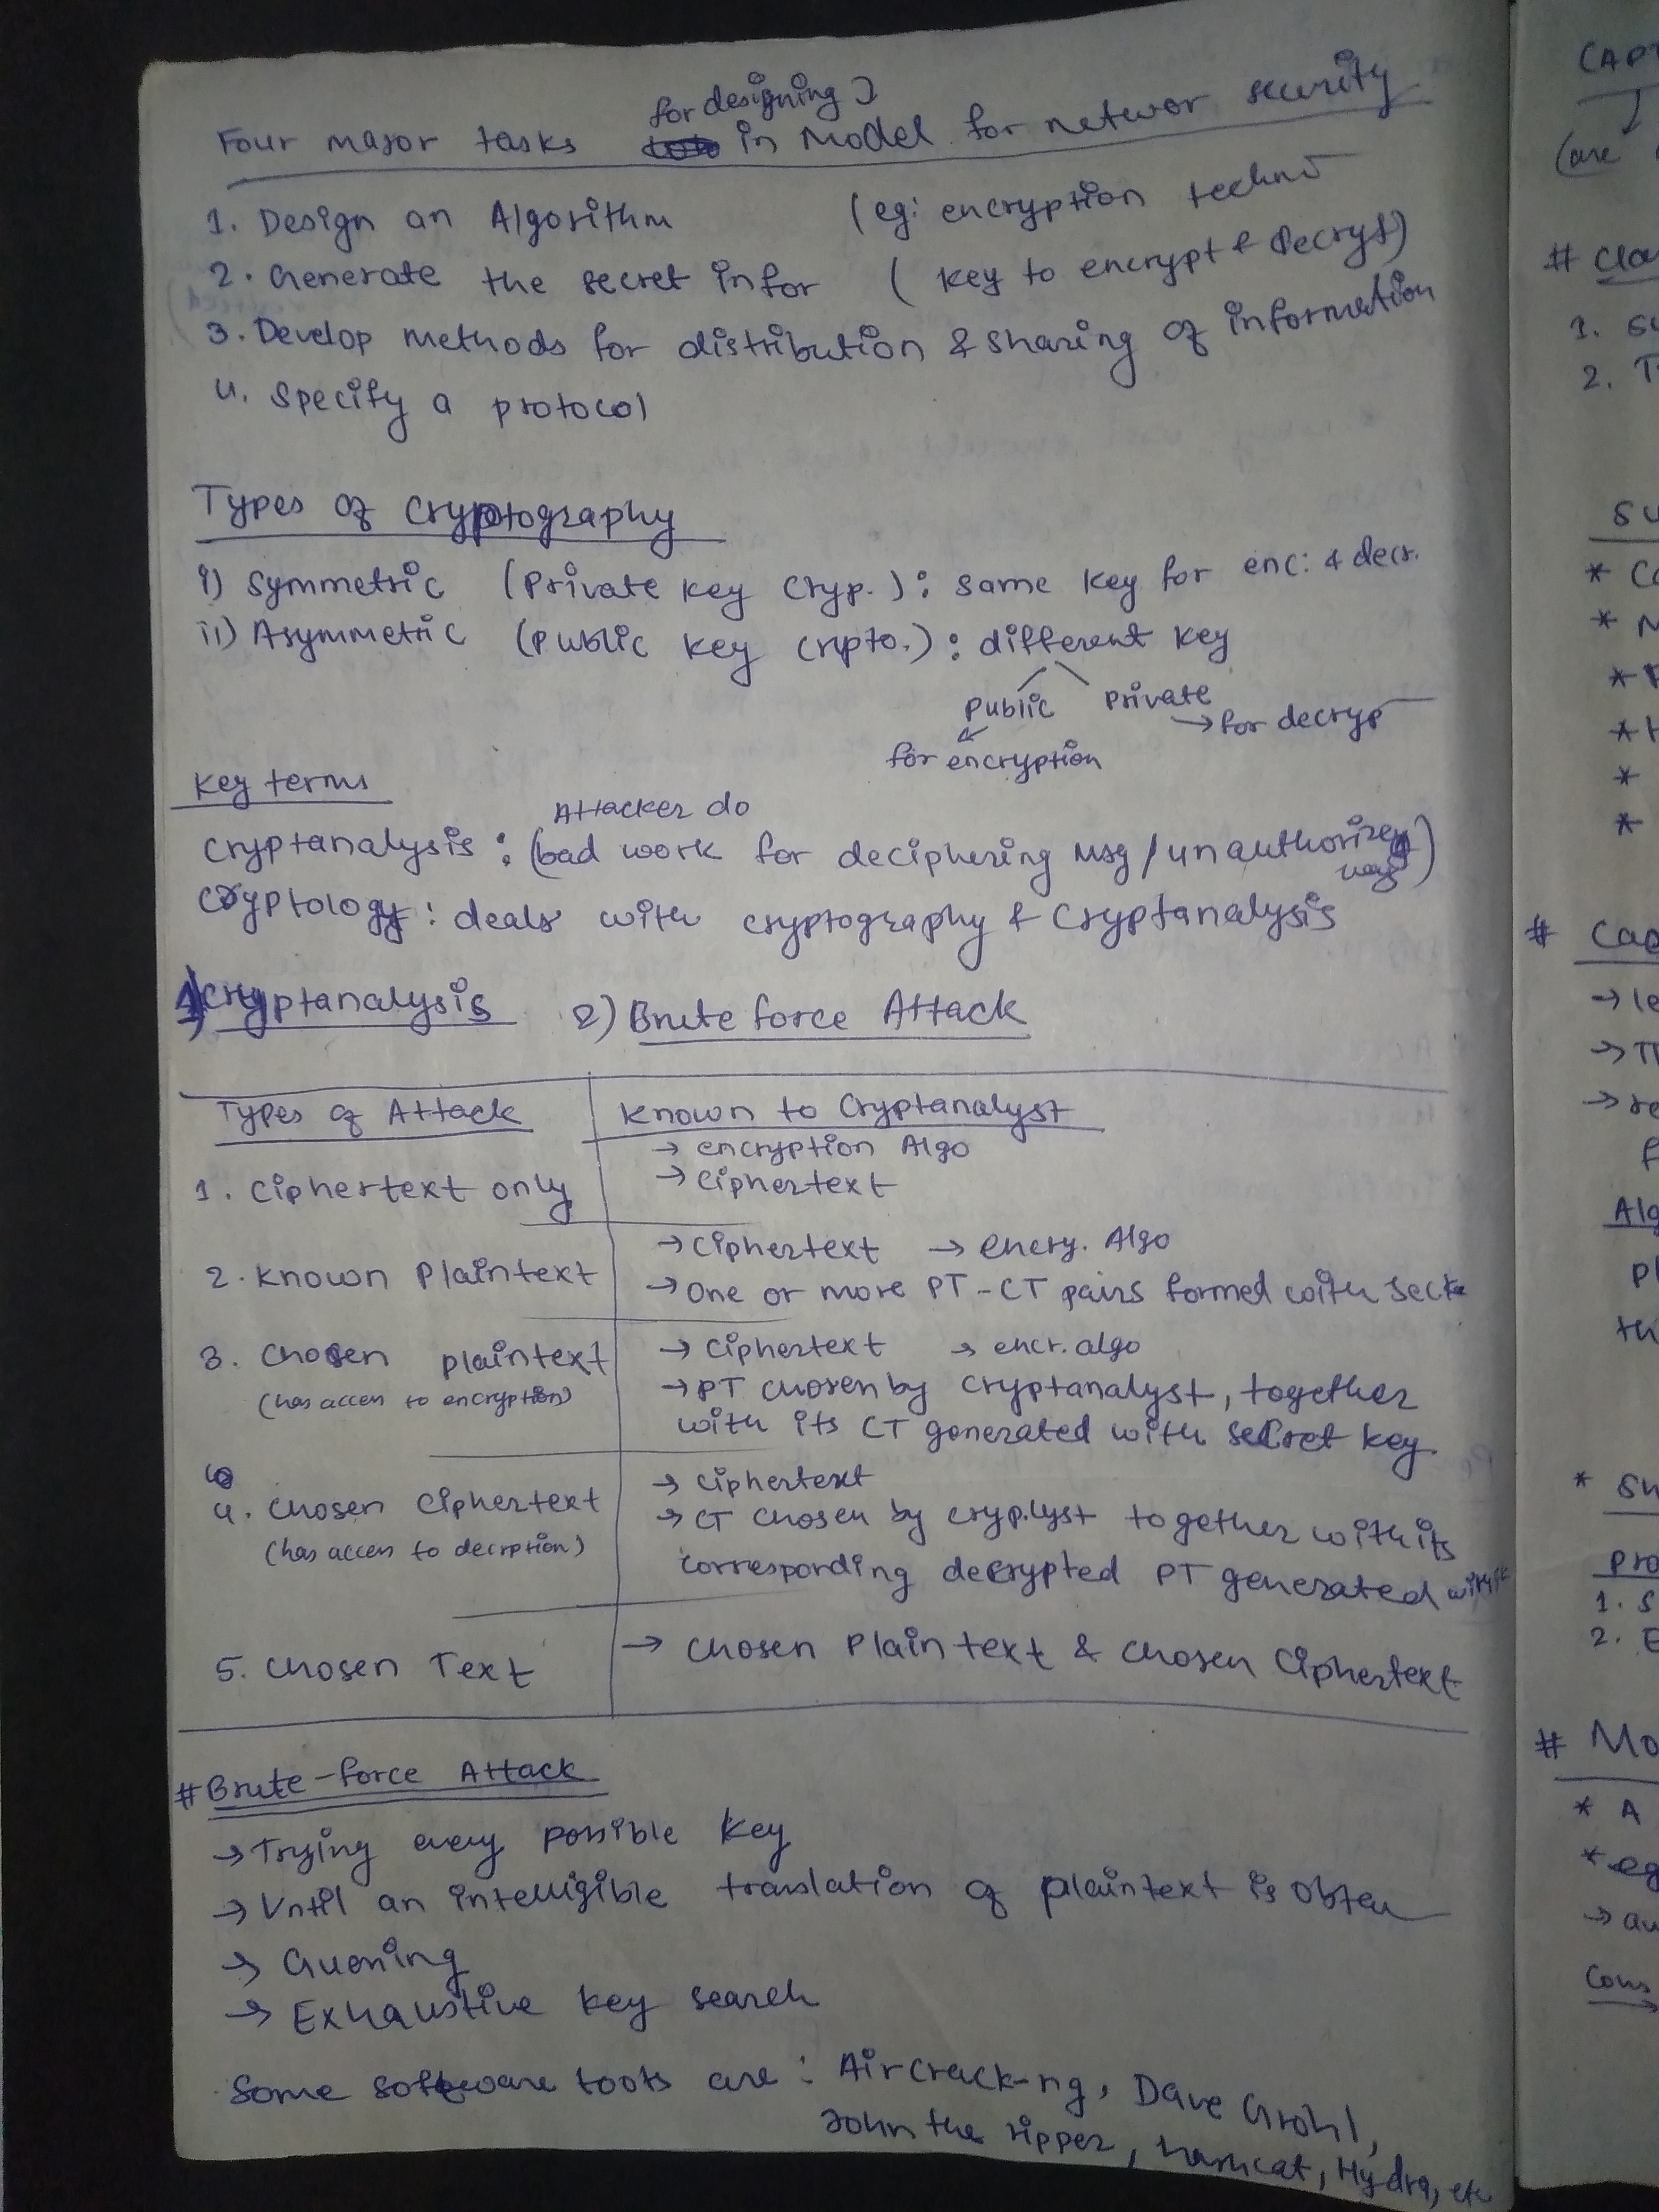 for designing
Four major tasks in Model for networ security
1. Design an Algorithm (eg: encryption techn
2. Generate the secret infor ( key to encrypt & decrypt)
3. Develop methods for distribution & sharing of information
4. Specify a protocol
Types of Cryptography
i) Symmetric (Private key Cryp.) : same key for enc: & decr.
ii) Asymmetric (Public key crypto.) : different key
Public Private
→ for decryp
for encryption
Key terms
Attacker do
Cryptanalysis : (bad work for deciphering Msg / unauthorized
way)
Cryptology : deals with cryptography & Cryptanalysis
1) Cryptanalysis 2) Brute force Attack
Types of Attack Known to Cryptanalyst
→ encryption Algo
1. Ciphertext only → Ciphertext
→ Ciphertext → encry. Algo
2. Known Plaintext → One or more PT-CT pairs formed with
3. Chosen plaintext → Ciphertext → encr. algo
(has access to encryption) → PT chosen by cryptanalyst, together
with its CT generated with secret key.
→ Ciphertext
4. Chosen Ciphertext → CT chosen by cryp.lyst together with its
(has access to decrption) corresponding decrypted PT generated
5. Chosen Text → Chosen Plain text & Chosen Ciphertext
# Brute-force Attack
→ Trying every possible key
→ Until an intelligible translation of plaintext is obten
→ Guessing
→ Exhaustive key search
Some software tools are : Aircrack-ng, Dave Grohl,
John the ripper, hashcat, Hydra, etc
CAPT
(are
# Cla
1. Sy
2. T
Su
* Co
* N
*
*
*
*
# Cae
→ le
→ Th
→ re
f
Alg
pl
th
* Sh
pro
1. S
2. E
# Mo
* A
* eg
→ au
Cons